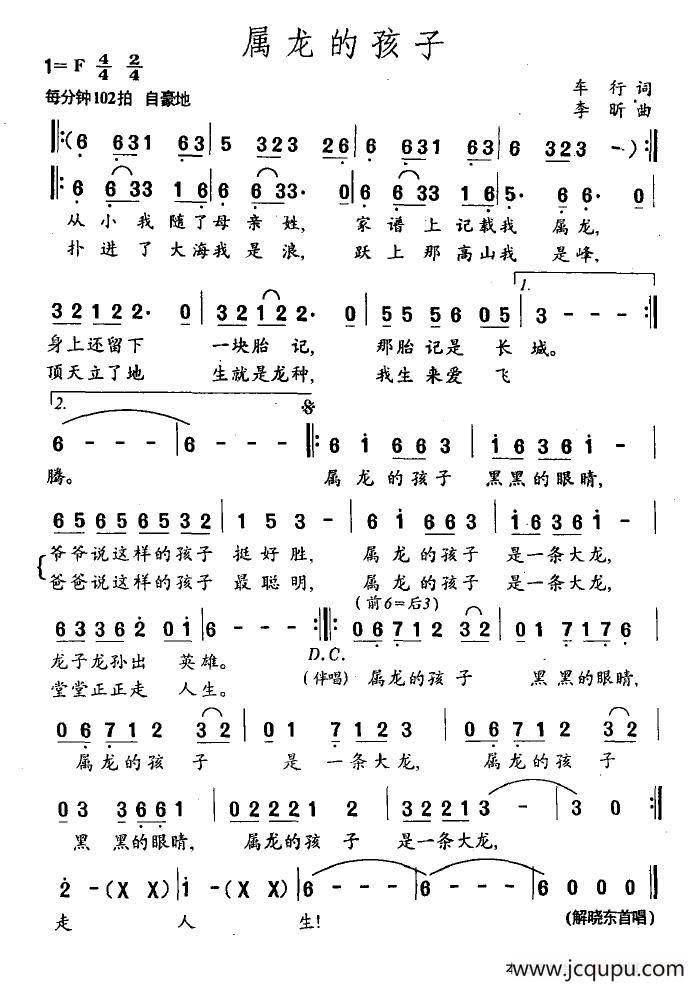 属龙的孩子
1=F 4/4 2/4
每分钟102拍 自豪地
车行词
李昕曲
‖:(6 631 63 | 5 323 26 | 6 631 63 | 6 323 - ):‖
‖: 6 633 16 | 6 633· 0 | 6 633 16 | 5· 6 6· 0 |
从小我随了母亲姓, 家谱上记载我 属龙,
扑进了大海我是浪, 跃上那高山我 是峰,
32122· 0 | 32122· 0 | 55 56 05 | 3 - - - :‖
1.
身上还留下 一块胎记, 那胎记是 长城。
顶天立了地 生就是龙种, 我生来爱 飞
2.
6 - - - | 6 - - - ‖: 6 i 66 3 | i636i - |
腾。 属龙的孩子 黑黑的眼睛,
65656532 | 1 5 3 - | 6 i 66 3 | i636i - |
爷爷说这样的孩子 挺好胜, 属龙的孩子 是一条大龙,
爸爸说这样的孩子 最聪明, 属龙的孩子 是一条大龙,
(前6=后3)
63362 0i | 6 - - - :‖: 06712 32 | 01 7176 |
龙子龙孙出 英雄。 D.C. (伴唱) 属龙的孩子 黑黑的眼睛,
堂堂正正走 人生。
06712 32 | 01 7123 | 06712 32 |
属龙的孩子 是一条大龙, 属龙的孩子
03 3661 | 02221 2 | 322213 - | 3 0 :‖
黑黑的眼睛, 属龙的孩子 是一条大龙,
2 - (X X) | i - (X X) | 6 - - - | 6 - - - | 6 0 0 0 ‖
走 人 生!
(解晓东首唱)
www.jcqupu.com